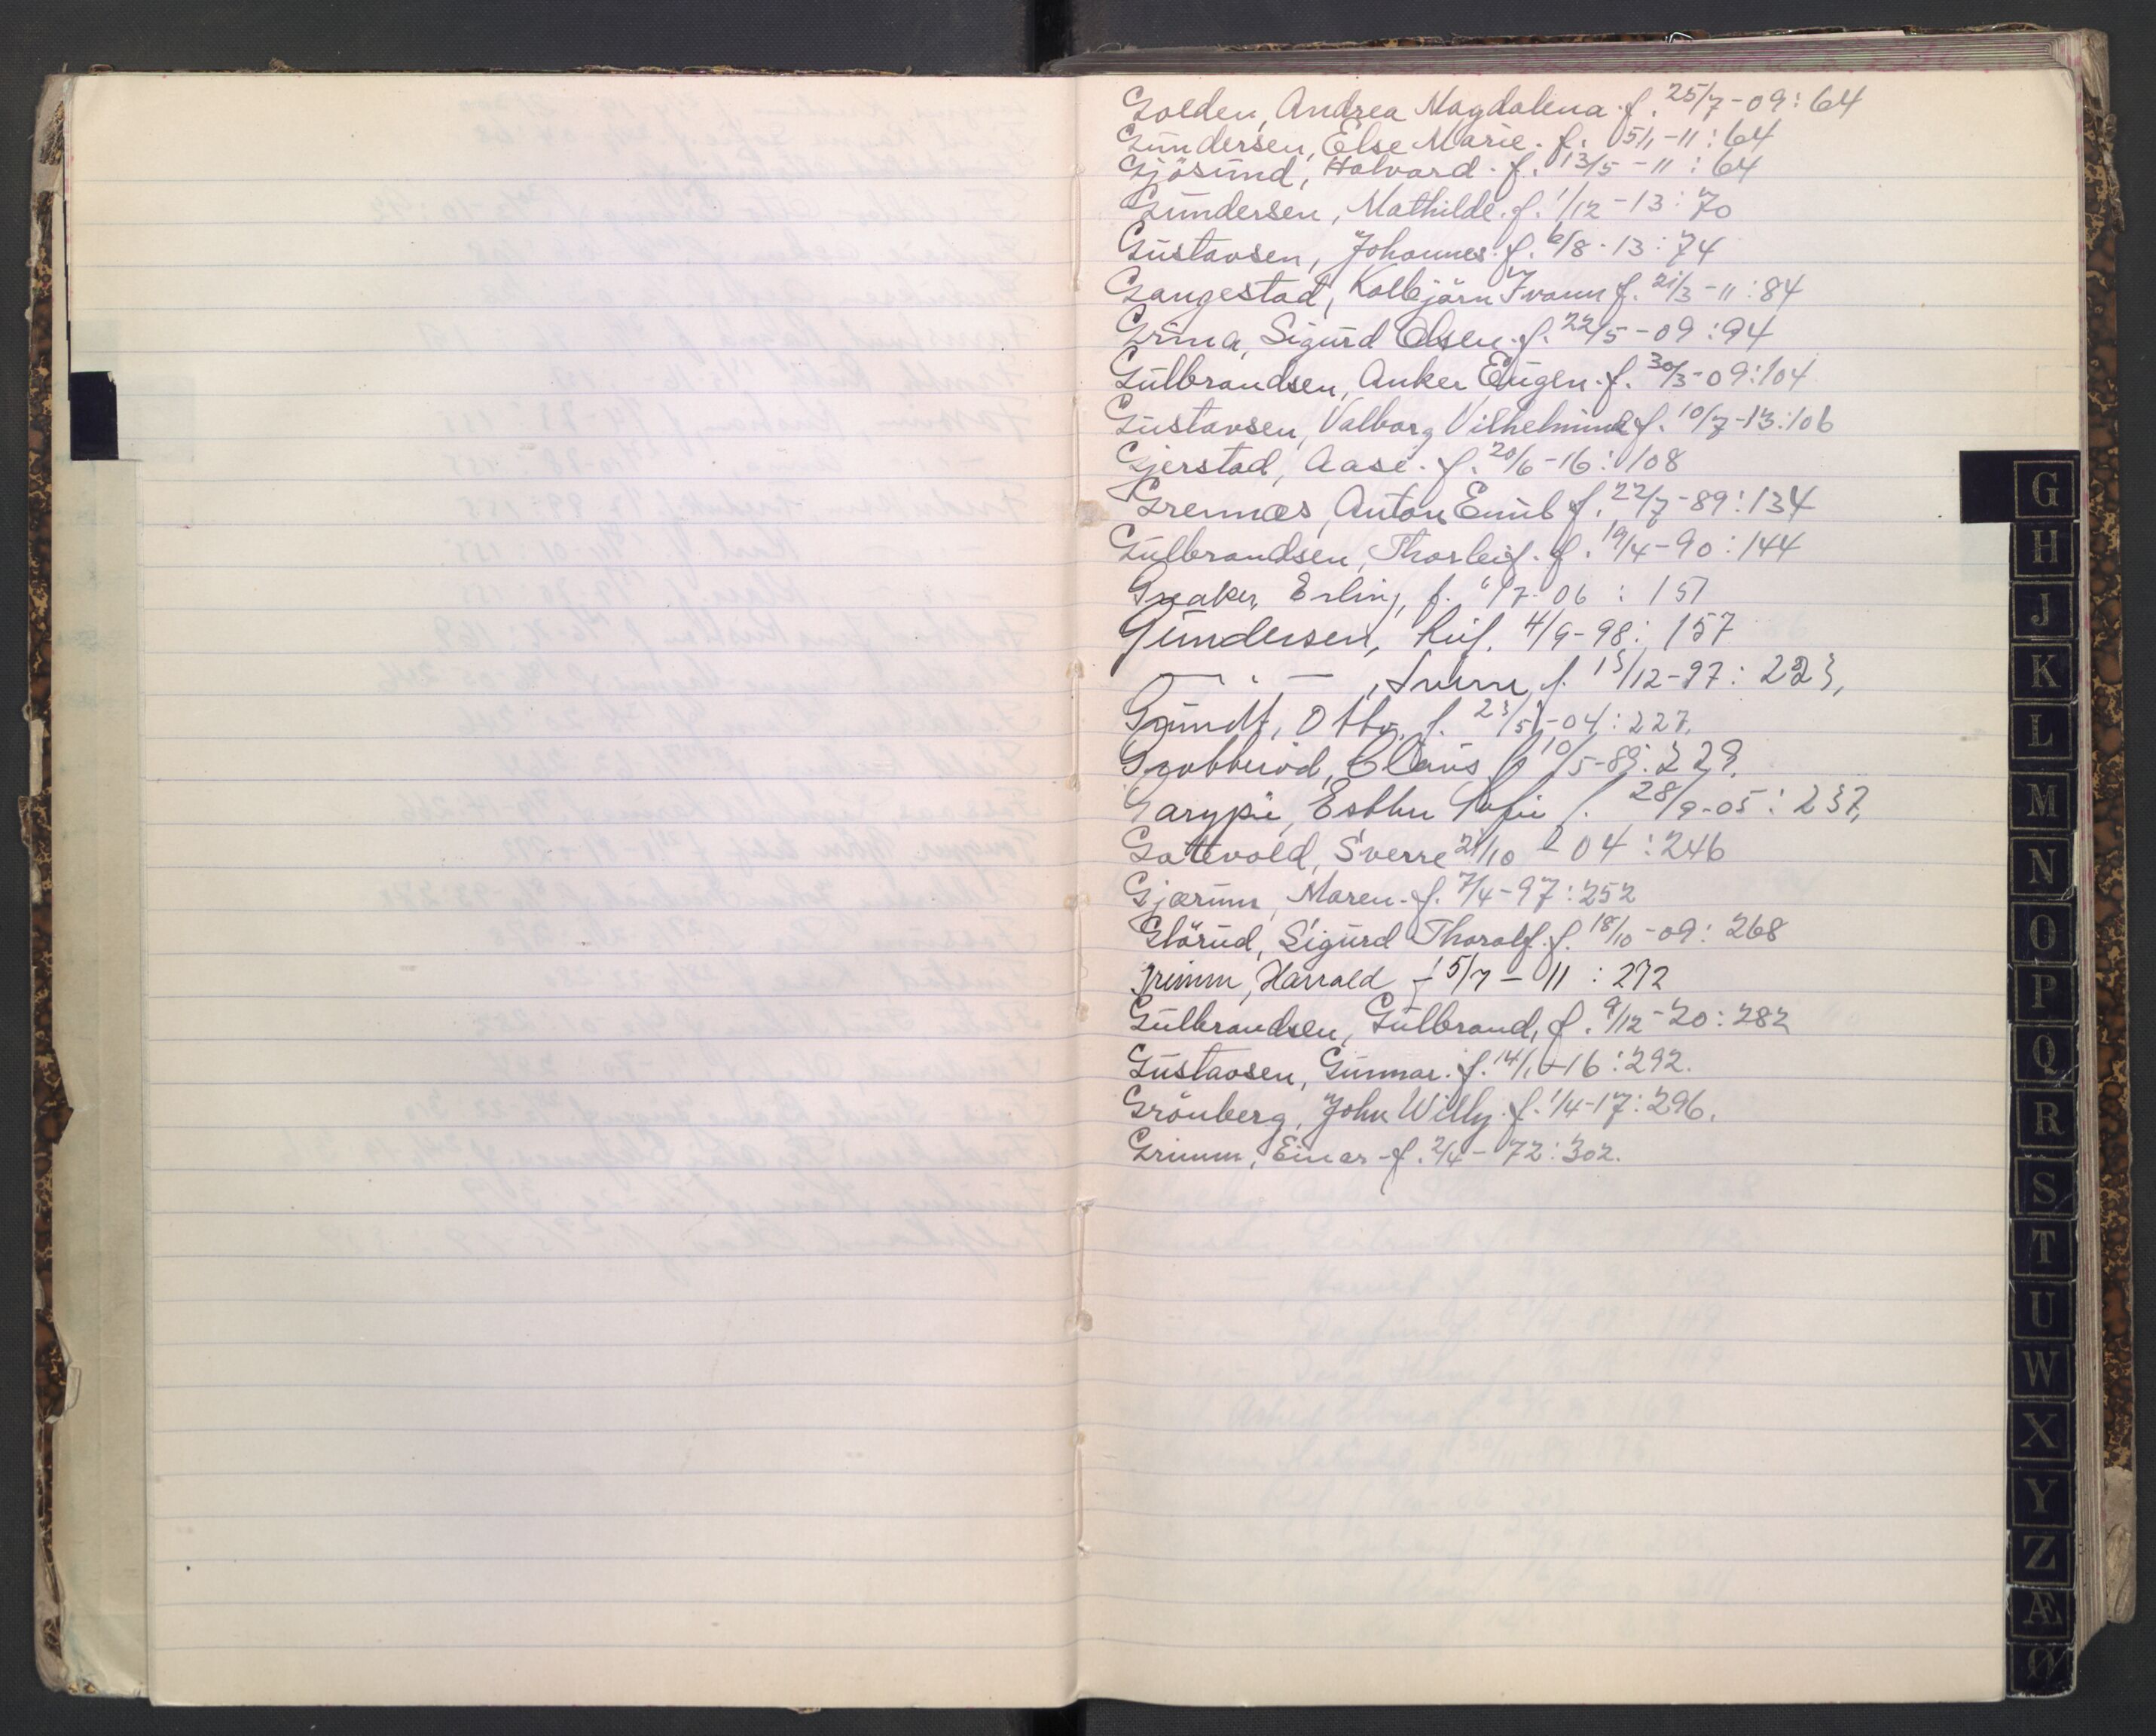 Golden, Andrea Magdalena. f. 25/7-09: 64
Gundersen, Else Marie. f. 5/1-11: 64
Gjösund, Halvard. f. 13/5-11: 64
Gundersen, Mathilde. f. 1/12-13: 70
Gustavsen, Johannes. f. 6/8-13: 74
Gangestad, Kolbjörn f. 21/3-11: 84
Grina, Sigurd Olsen. f. 22/5-09: 94
Gulbrandsen, Anker Eugen. f. 30/3-09: 104
Gustavsen, Valborg Vilhelmine f. 10/7-13: 106
Gjerstad, Aase. f. 20/6-16: 108
Grennæs, Anton Emil f. 22/7-89: 134
Gulbrandsen, Thorleif. f. 19/4-90: 144
Greaker, Erling, f. /7-06: 151
Gundersen, 4/9-98: 157
— " — , f. 15/12-97: 223,
Grundt, Otto, f. 23/5-04: 227.
Claus f. 10/5-89: 229.
f. 28/9-05: 237,
Gottevold, Sverre 21/10-04: 246
Gjærum, Maren. f. 7/4-97: 252
Glörud, Sigurd Thoralf. f. 18/10-09: 268
Grimm, Harrald f 5/7-11: 272
Gulbrandsen, Gulbrand, f. 9/12-20: 282
Gustavsen, Gunnar. f. 14/1-16: 292.
Grönberg, John Willy. f. 1/4-17: 296.
Grimm, Einar. f. 2/4-72: 302.
G
H
J
K
L
M
N
O
P
Q
R
S
T
U
W
X
Y
Z
Æ
Ø